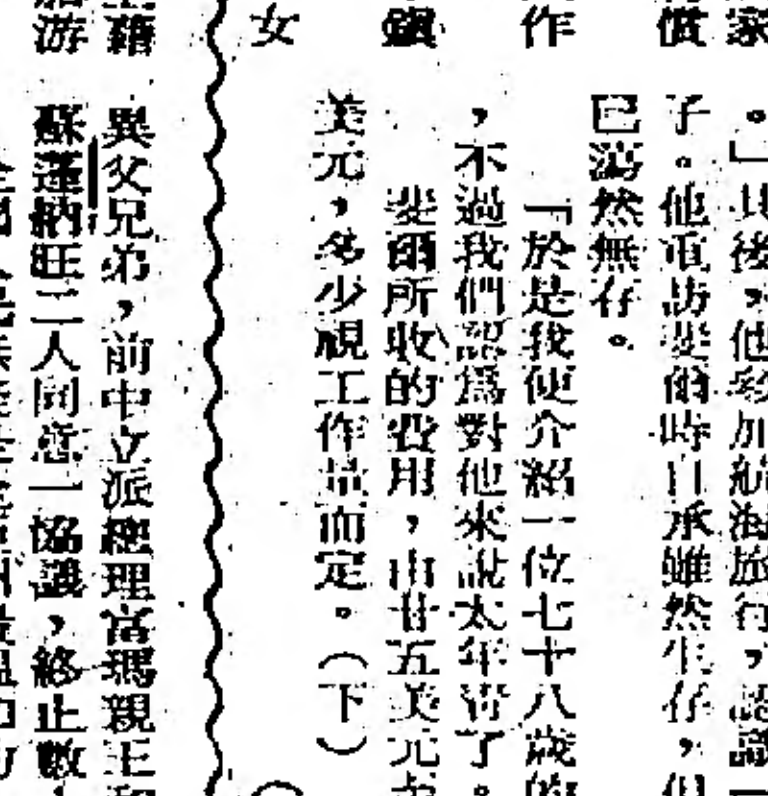 家
。」其後,他參加航海旅行,認識一
慣
子。他重訪斐爾時自承雖然生存,但
已蕩然無存。
作
「於是我便介紹一位七十八歲的
,不過我們認爲對他來說太年靑了。
鎭
斐爾所收的費用,由廿五美元
美元,多少視工作量而定。(下)
女
藉
異父兄弟,前中立派總理富瑪親王和
游
蘇蓬納旺二人同意一協議,終止數